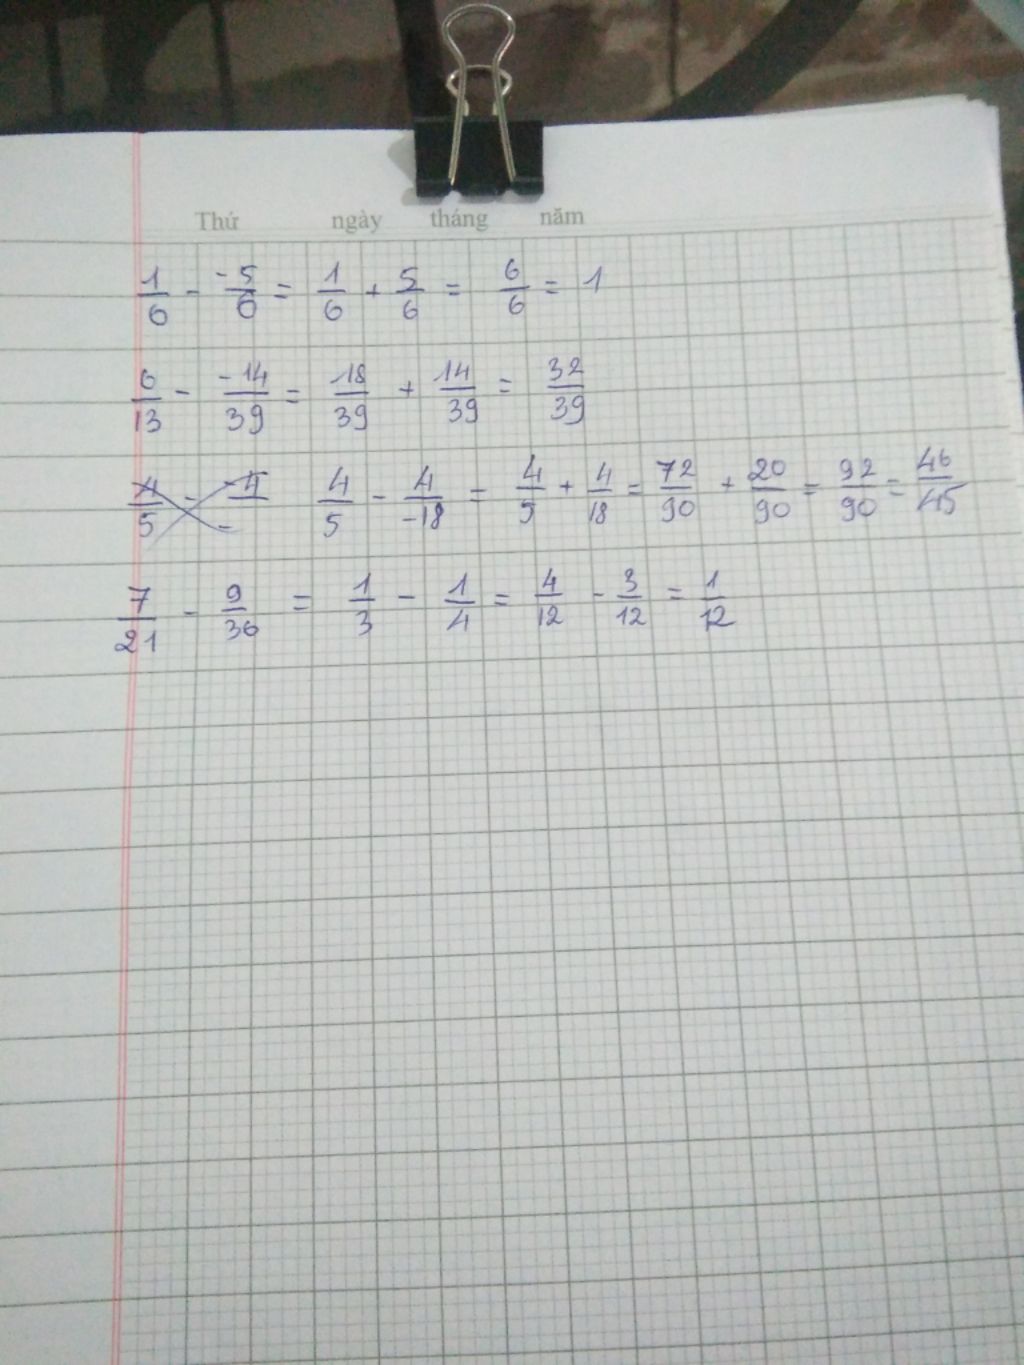 Thứ ngày tháng năm
1/6 - -5/6 = 1/6 + 5/6 = 6/6 = 1
6/13 - -14/39 = 18/39 + 14/39 = 32/39
4/5 - 4/-18 = 4/5 + 4/18 = 72/90 + 20/90 = 92/90 = 46/45
7/21 - 9/36 = 1/3 - 1/4 = 4/12 - 3/12 = 1/12